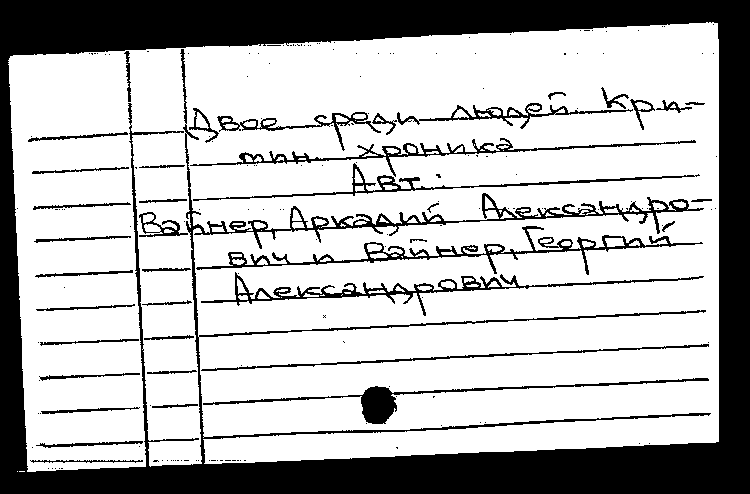 Двое среди людей. Кри-
мин. хроника
Авт.:
Вайнер, Аркадий Александро-
вич и Вайнер, Георгий
Александрович.